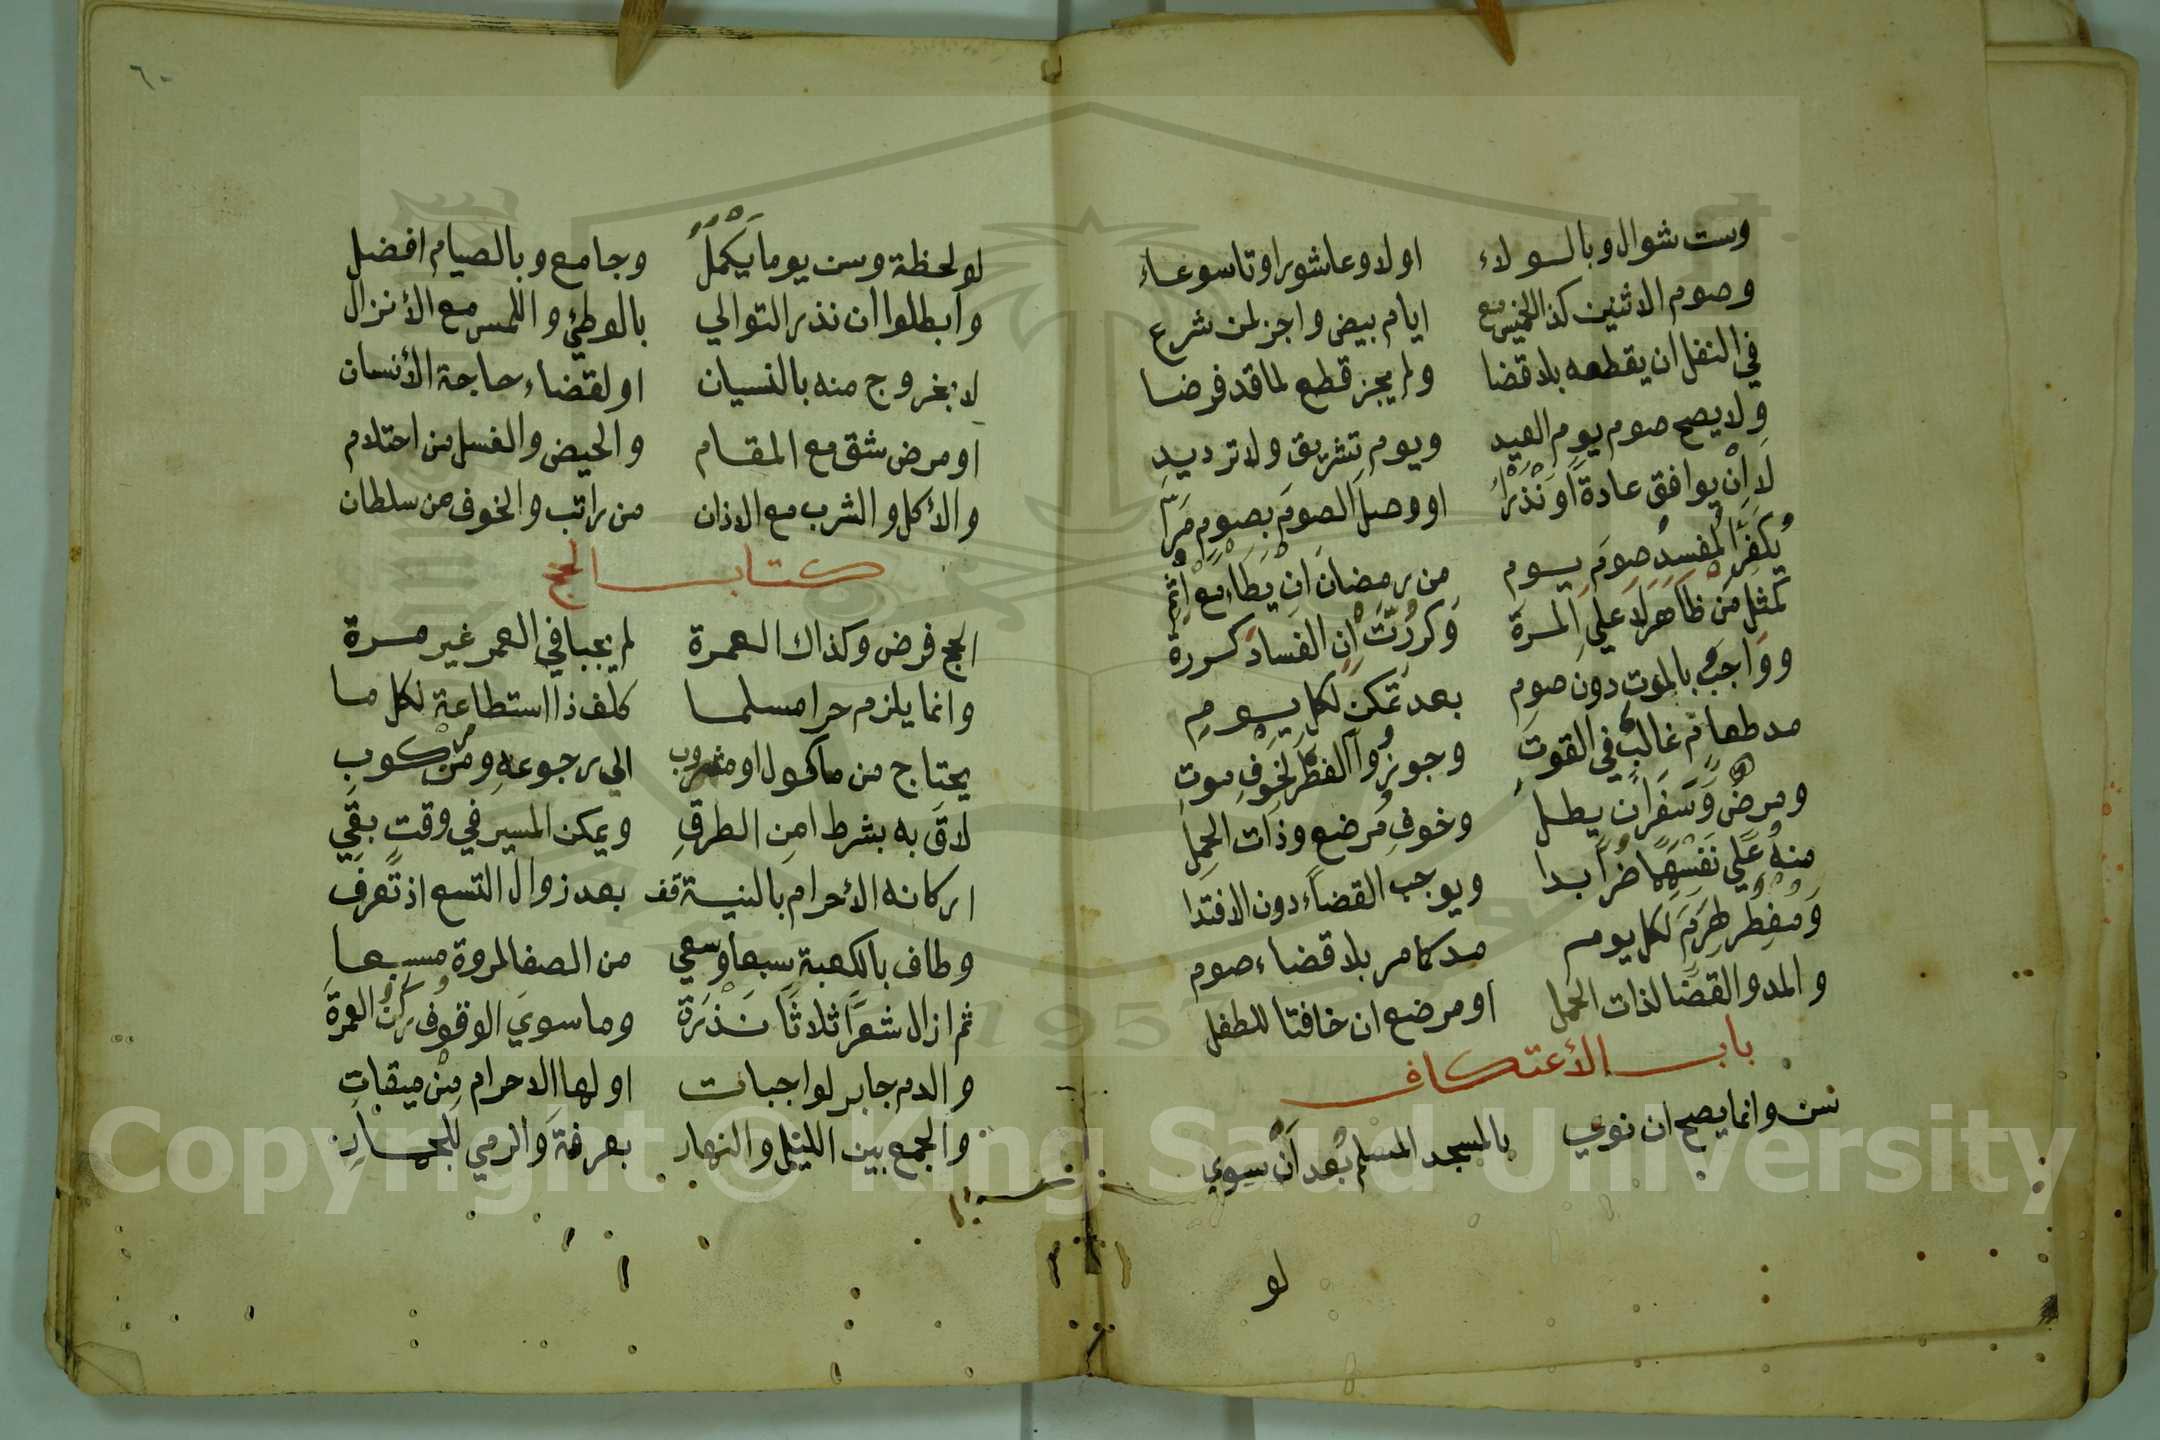 وست شوال وبالولاء اولا وعاشورا وتاسوعاء
وصوم الاثنين كذا الخميس مع ايام بيض واجز لمن شرع
في النفل ان يقطعه بلا قضا ولم يجز قطع لما قد فرضا
ولا يصح صوم يوم العيد ويوم تشريق ولا ترديد
لَا اِنْ يوافق عادةً اَوْ نَذْرًا او وصلَ الصومَ بِصومٍ مَرَّا
يُكَفِّرُ المُفسِدُ صومَ يوم مِن رمضانَ اِنْ يَطَاءْ مَعْ اِثْمِ
كمثلِ مَنْ ظَاهَرَ لَا علي المرة وَكررتْ اِنِ الفسادُ كررة
وواجبٌ بالموتِ دونَ صوم بعد تمكنٍ لكلِ يومِ
مد طعامٍ غالبٍ في القوتِ وجوزُوا الفطْرَ لخوفِ موتِ
ومرضٌ وَسَفَرًا ن يطل وخوفِ مُرضع وذات الحملِ
منهُ عَلي نَفْسِهِمَا ضرًا بدا ويوجب القضاء دون الافتدا
وَمُفْطِرٌ لِهَرَمٍ لكل يوم مد كما مر بلا قضاء صوم
والمد والقضَا لذات الحمل او مرضع ان خافتا للطفل
باب الأعتكاف
سن وانما يصح ان نوي بالمسجد المسلم بَعْد اَنْ سِوي
لو
٦٠
لو لحظة وسن يوما يَكْمُلُ وجامع وبالصيام افضل
وأبطلوا ان نذر التوالي بالوطيء واللمس مع الأنزال
لا بخروج منه بالنسيان او لقضاء حاجة الأنسان
او مرض شق مع المقام والحيض والغسل من احتلام
والأكل والشرب مع الاذان من راتب والخوف من سلطان
كتاب الحج
الحج فرض وكذاك العمرة لم يجبا في العمر غير مرة
وانما يلزم حرا مسلما كلف ذا استطاعة لكل ما
يحتاج من ماكول او مشروب الي رجوعهِ ومن مركوب
لاقَ به بشرط امنِ الطرقِ ويمكن المسير في وقتٍ بقي
اركانه الأحرام بالنية قف بعد زوال التسع اذ تعرف
وطاف بالكعبة سبعا وسعي من الصفا لمروة مسبعا
ثم ازال شَعَرًا ثلاثًا نَذْرَة وما سوي الوقوف رُكْنُ العمرة
والدم جابر لواجبات اولها الاحرام مِنْ ميقات
والجمع بين الليل والنهار بعرفةَ والرمي للجمار